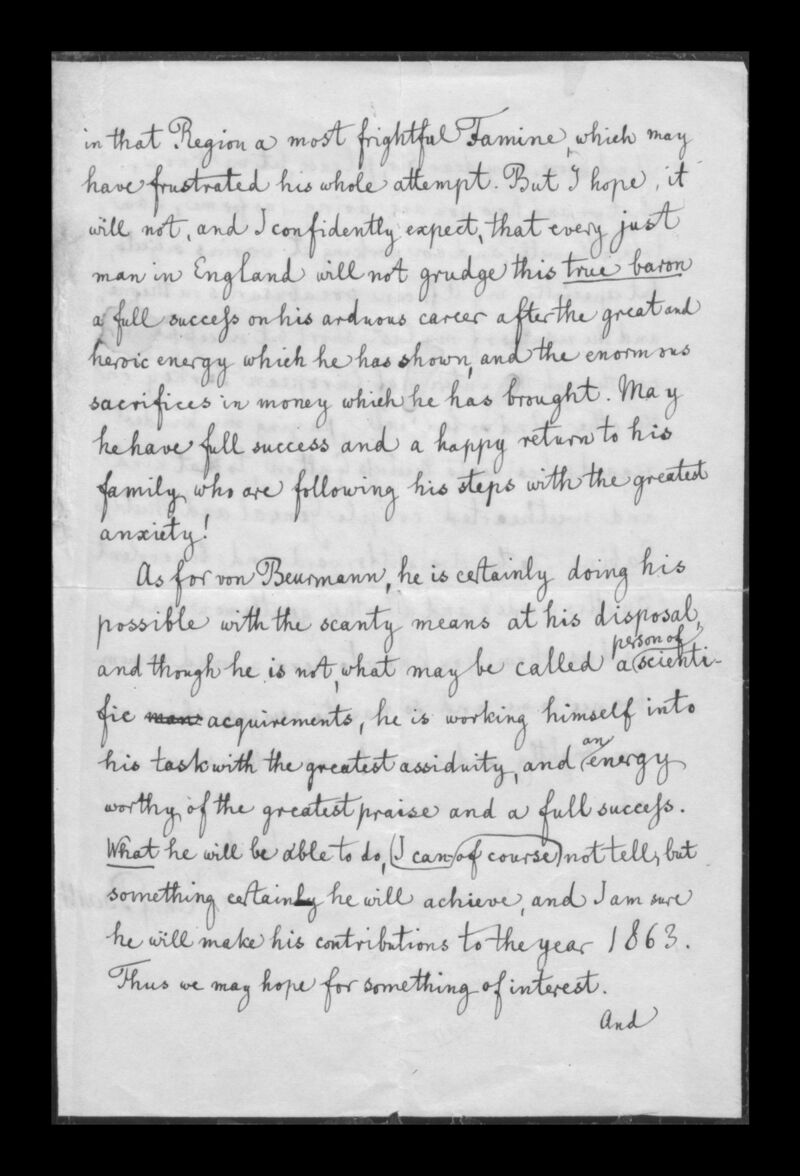 in that Region a most frightful Famine, which may
have frustrated his whole attempt. But I hope, it
will not, and I confidently expect, that every just
man in England will not grudge this true baron
a full success on his arduous career after the great and
heroic energy which he has shown, and the enormous
sacrifices in money which he has brought. May
he have full success and a happy return to his
family, who are following his steps with the greatest
anxiety!
As for von Beurmann, he is certainly doing his
possible with the scanty means at his disposal,
and though he is not, what may be called a person of scienti-
fic man acquirements, he is working himself into
his task with the greatest assiduity, and an energy
worthy of the greatest praise and a full success.
What he will be able to do, (I can of course) not tell, but
something certainly he will achieve, and I am sure
he will make his contributions to the year 1863.
Thus we may hope for something of interest.
And